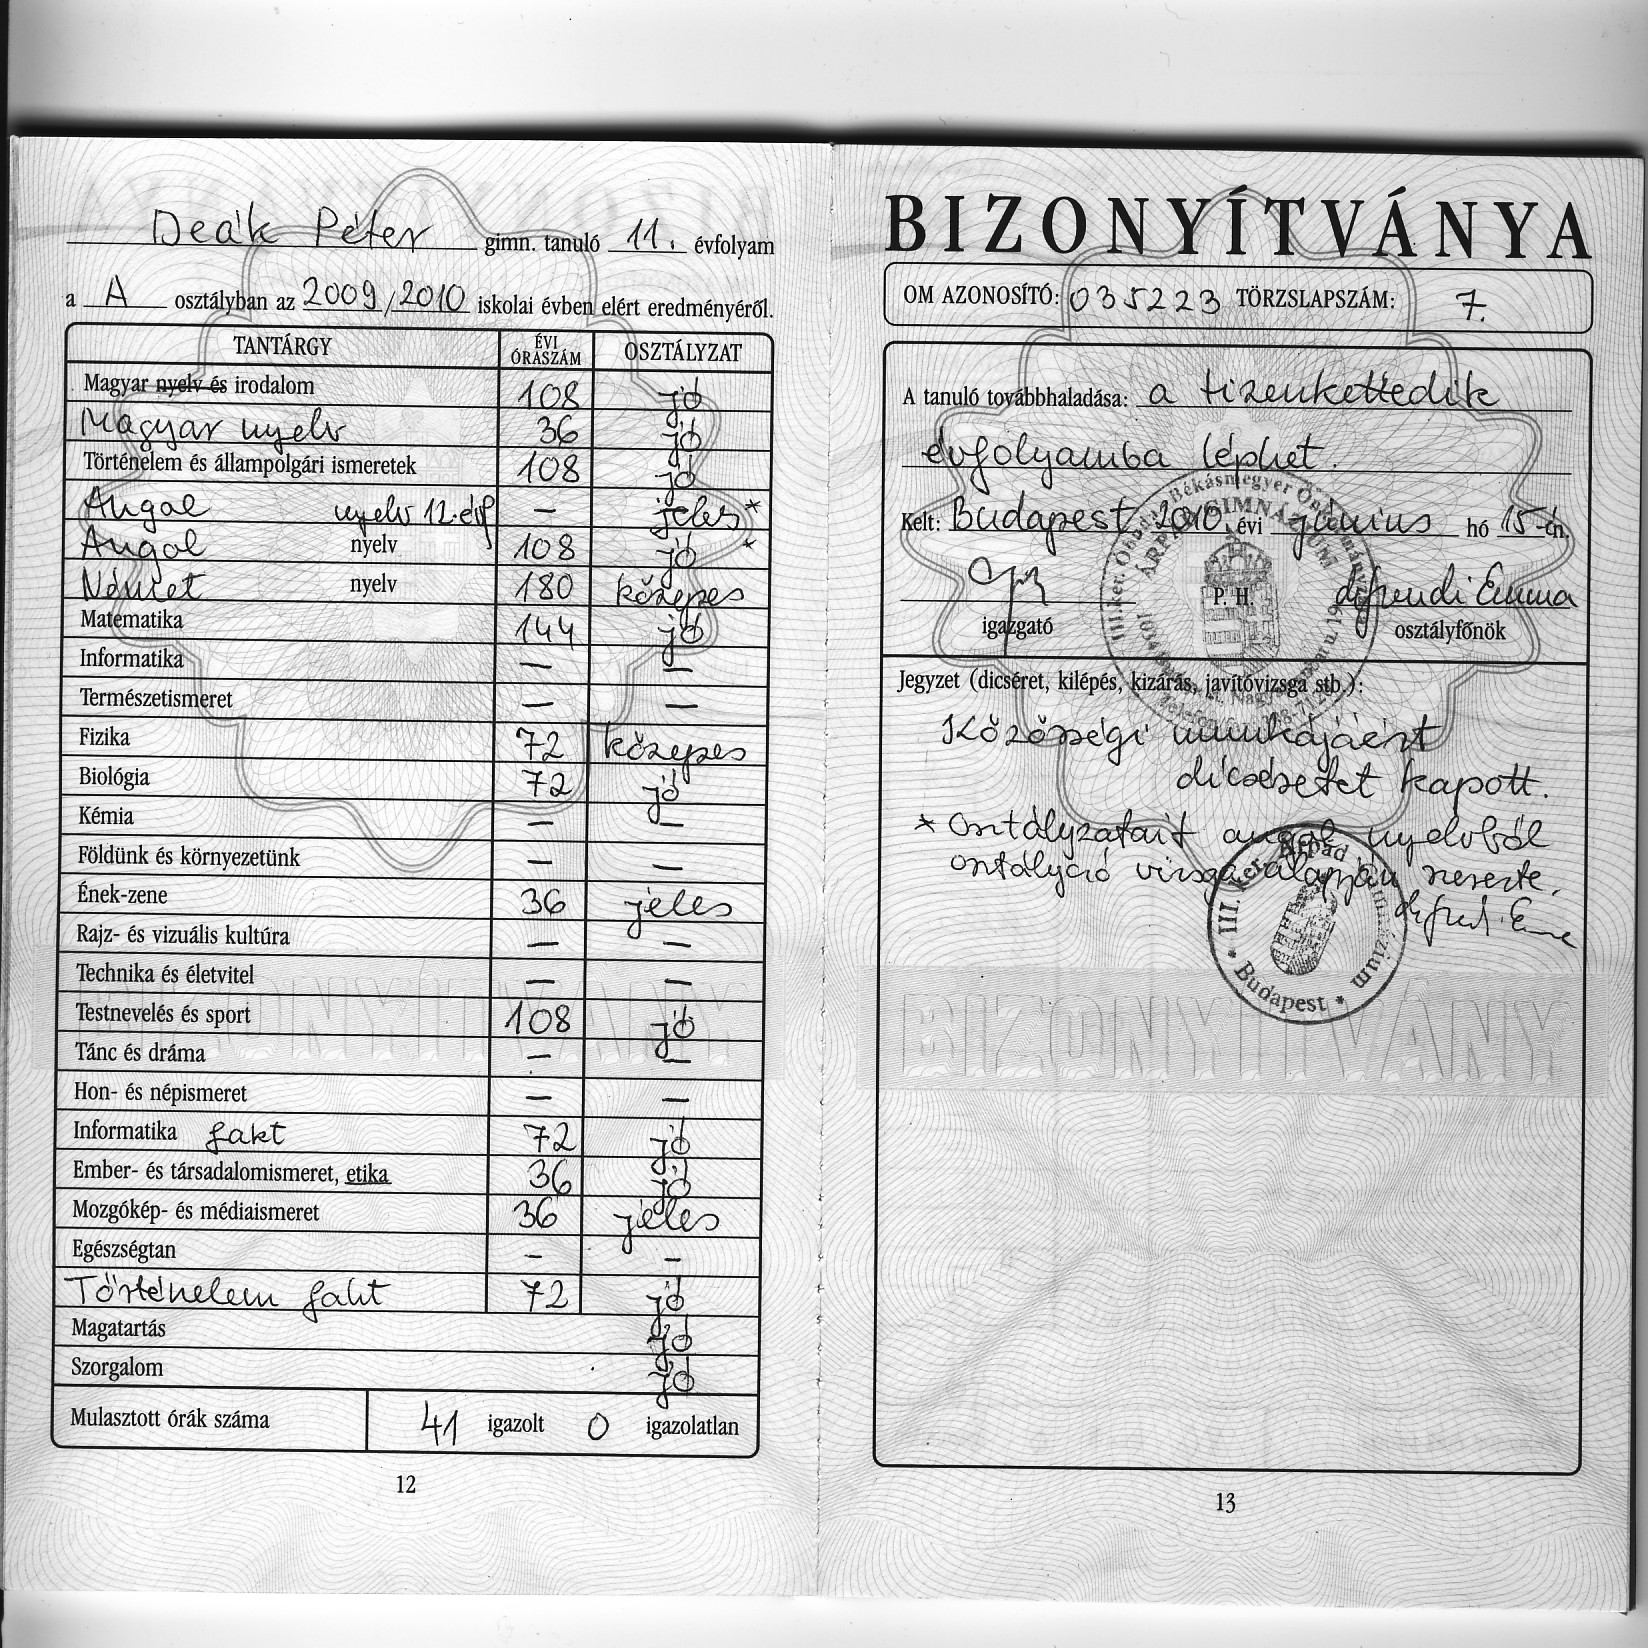 Deák Péter gimn. tanuló 11. évfolyam
a A osztályban az 2009/2010 iskolai évben elért eredményéről.
TANTÁRGY ÉVI ÓRASZÁM OSZTÁLYZAT
Magyar nyelv és irodalom 108 jó
Magyar nyelv 36 jó
Történelem és állampolgári ismeretek 108 jó
Angol nyelv 12. évf — jeles *
Angol nyelv 108 jó *
Német nyelv 180 közepes
Matematika 144 jó
Informatika — —
Természetismeret — —
Fizika 72 közepes
Biológia 72 jó
Kémia — —
Földünk és környezetünk — —
Ének-zene 36 jeles
Rajz- és vizuális kultúra — —
Technika és életvitel — —
Testnevelés és sport 108 jó
Tánc és dráma — —
Hon- és népismeret — —
Informatika fakt 72 jó
Ember- és társadalomismeret, etika 36 jó
Mozgókép- és médiaismeret 36 jeles
Egészségtan — —
Történelem fakt 72 jó
Magatartás jó
Szorgalom jó
Mulasztott órák száma 41 igazolt 0 igazolatlan
12
BIZONYÍTVÁNYA
OM AZONOSÍTÓ: 035223 TÖRZSLAPSZÁM: 7.
A tanuló továbbhaladása: a tizenkettedik
évfolyamba léphet.
Kelt: Budapest, 2010. évi június hó 15-én.
P. H.
igazgató osztályfőnök
Jegyzet (dicséret, kilépés, kizárás, javítóvizsga stb.):
Közösségi munkájáért
dicséretet kapott.
* Osztályzatait angol nyelvből
osztályozó vizsga alapján szerezte.
III. ker. Árpád Gimnázium
* Budapest *
BIZONYÍTVÁNY
13